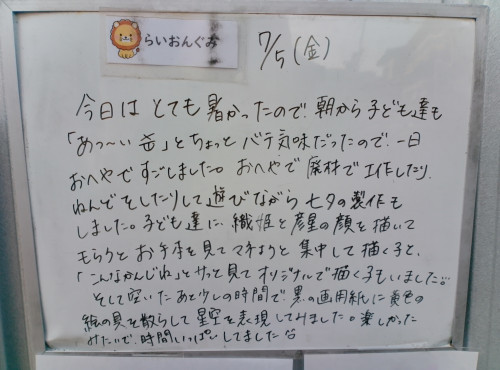 らいおんぐみ
7/5(金)
今日は とても 暑かったので 朝から 子ども達も
「あっ〜い」とちょっと バテ気味だったので 一日
おへやで すごしました。おへやで 廃材で工作したり、
ねんど をしたりして 遊びながら 七夕の製作も
しました。子ども達に 織姫と彦星の顔を描いて
もらうと お手本を見て マネようと 集中して 描く子と、
「こんなかんじね」とサッと見て オリジナルで描く子もいました。
そして空いた あと少しの時間で 黒の画用紙に 黄色の
絵の具を散らして星空を表現してみました。楽しかった
みたいで、時間いっぱいしてました